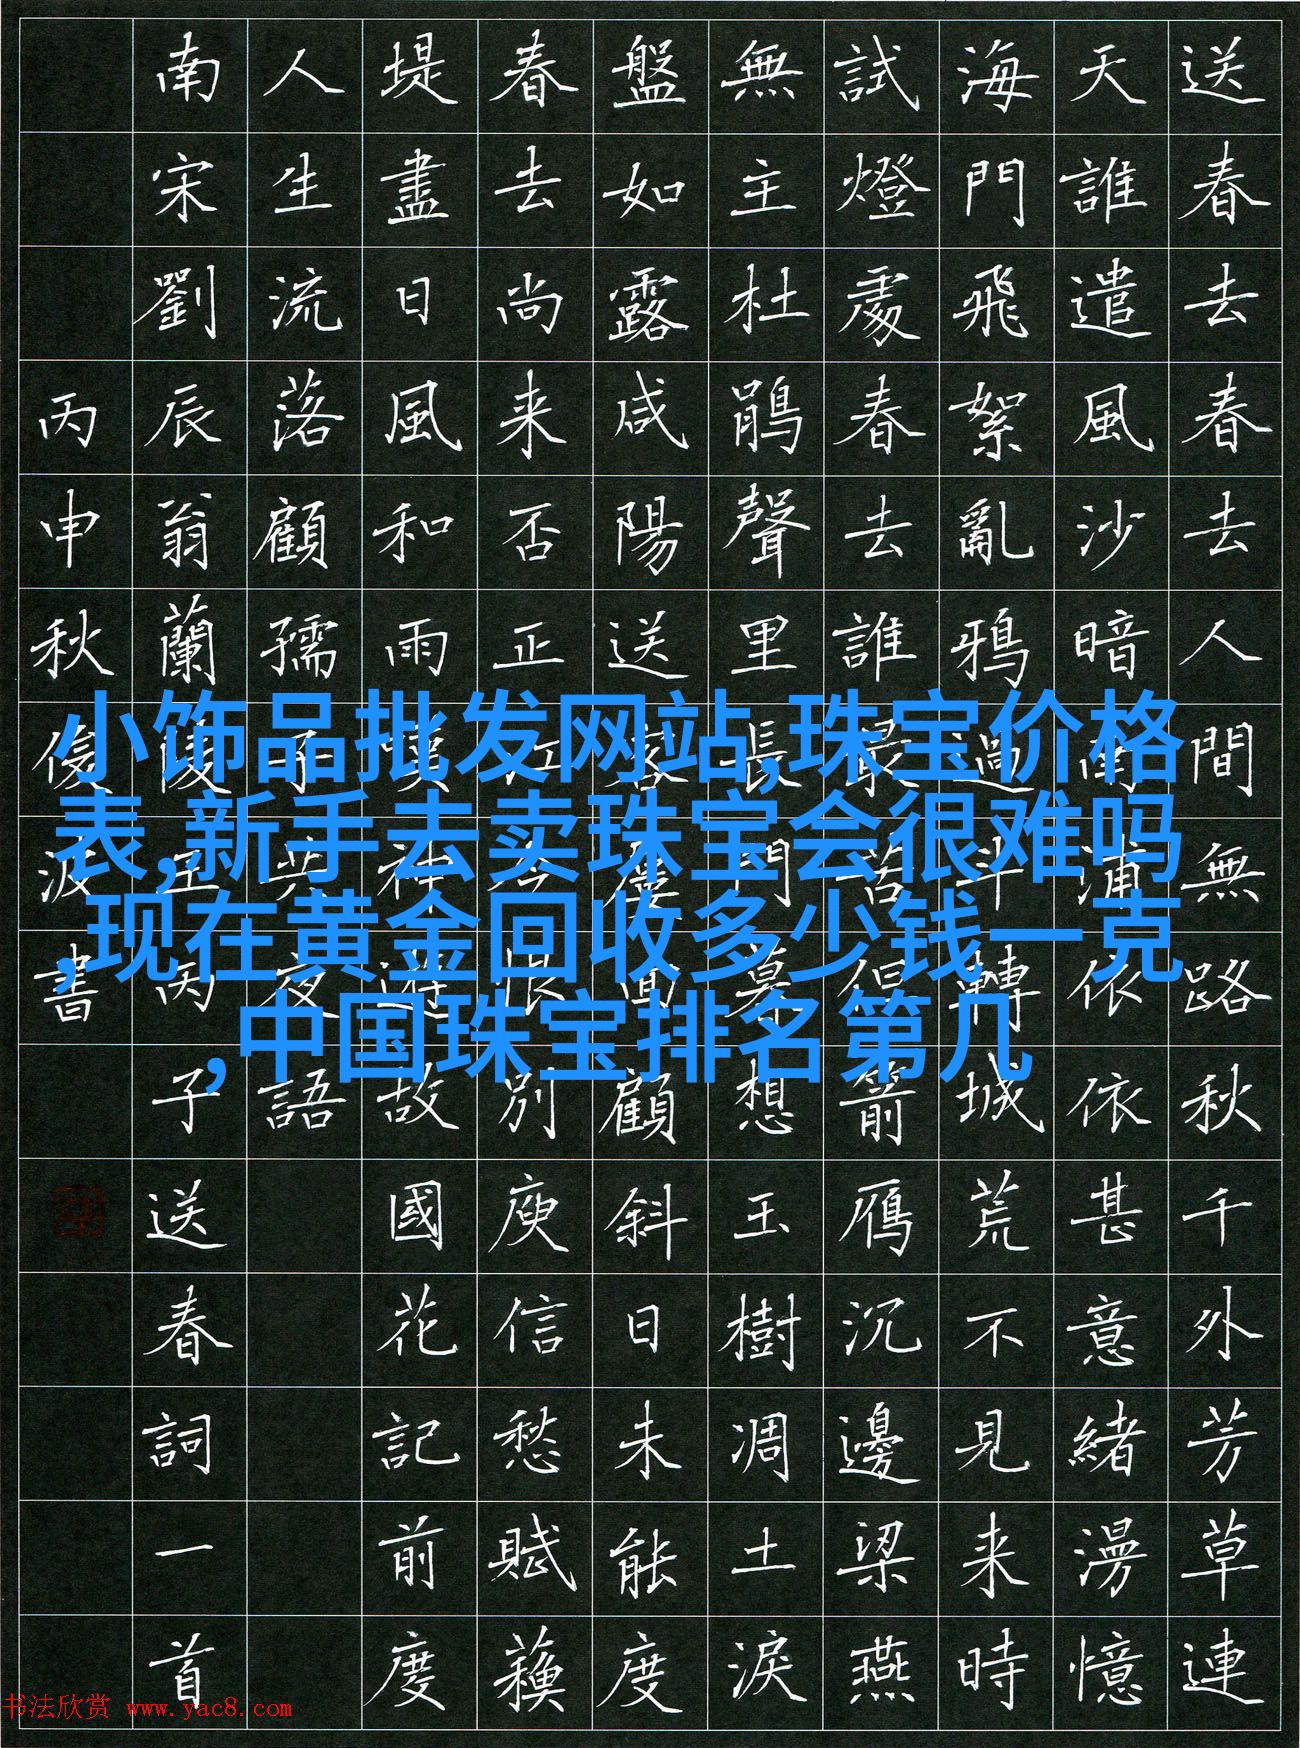 送春去春去人間無路秋千外芳草連
天誰遣風沙暗南浦依依甚意緒漫憶
海門飛絮亂鴉過斗轉城荒不見来時
試燈處春去誰最苦但箭雁沉邊梁燕
無主杜鵑聲里長門暮想玉樹凋土淚
盤如露咸陽送客屢回顧斜日未能度
春去尚来否正江令恨別庾信愁賦蘓
堤盡日風和雨嘆神遊故國花記前度
人生流落顧孺子共夜語
南宋劉辰翁蘭陵王丙子送春詞一首
丙申秋俊波書
小饰品批发网站,珠宝价格
表,新手去卖珠宝会很难吗
,现在黄金回收多少钱一克
,中国珠宝排名第几
书法欣赏 www.yac8.com